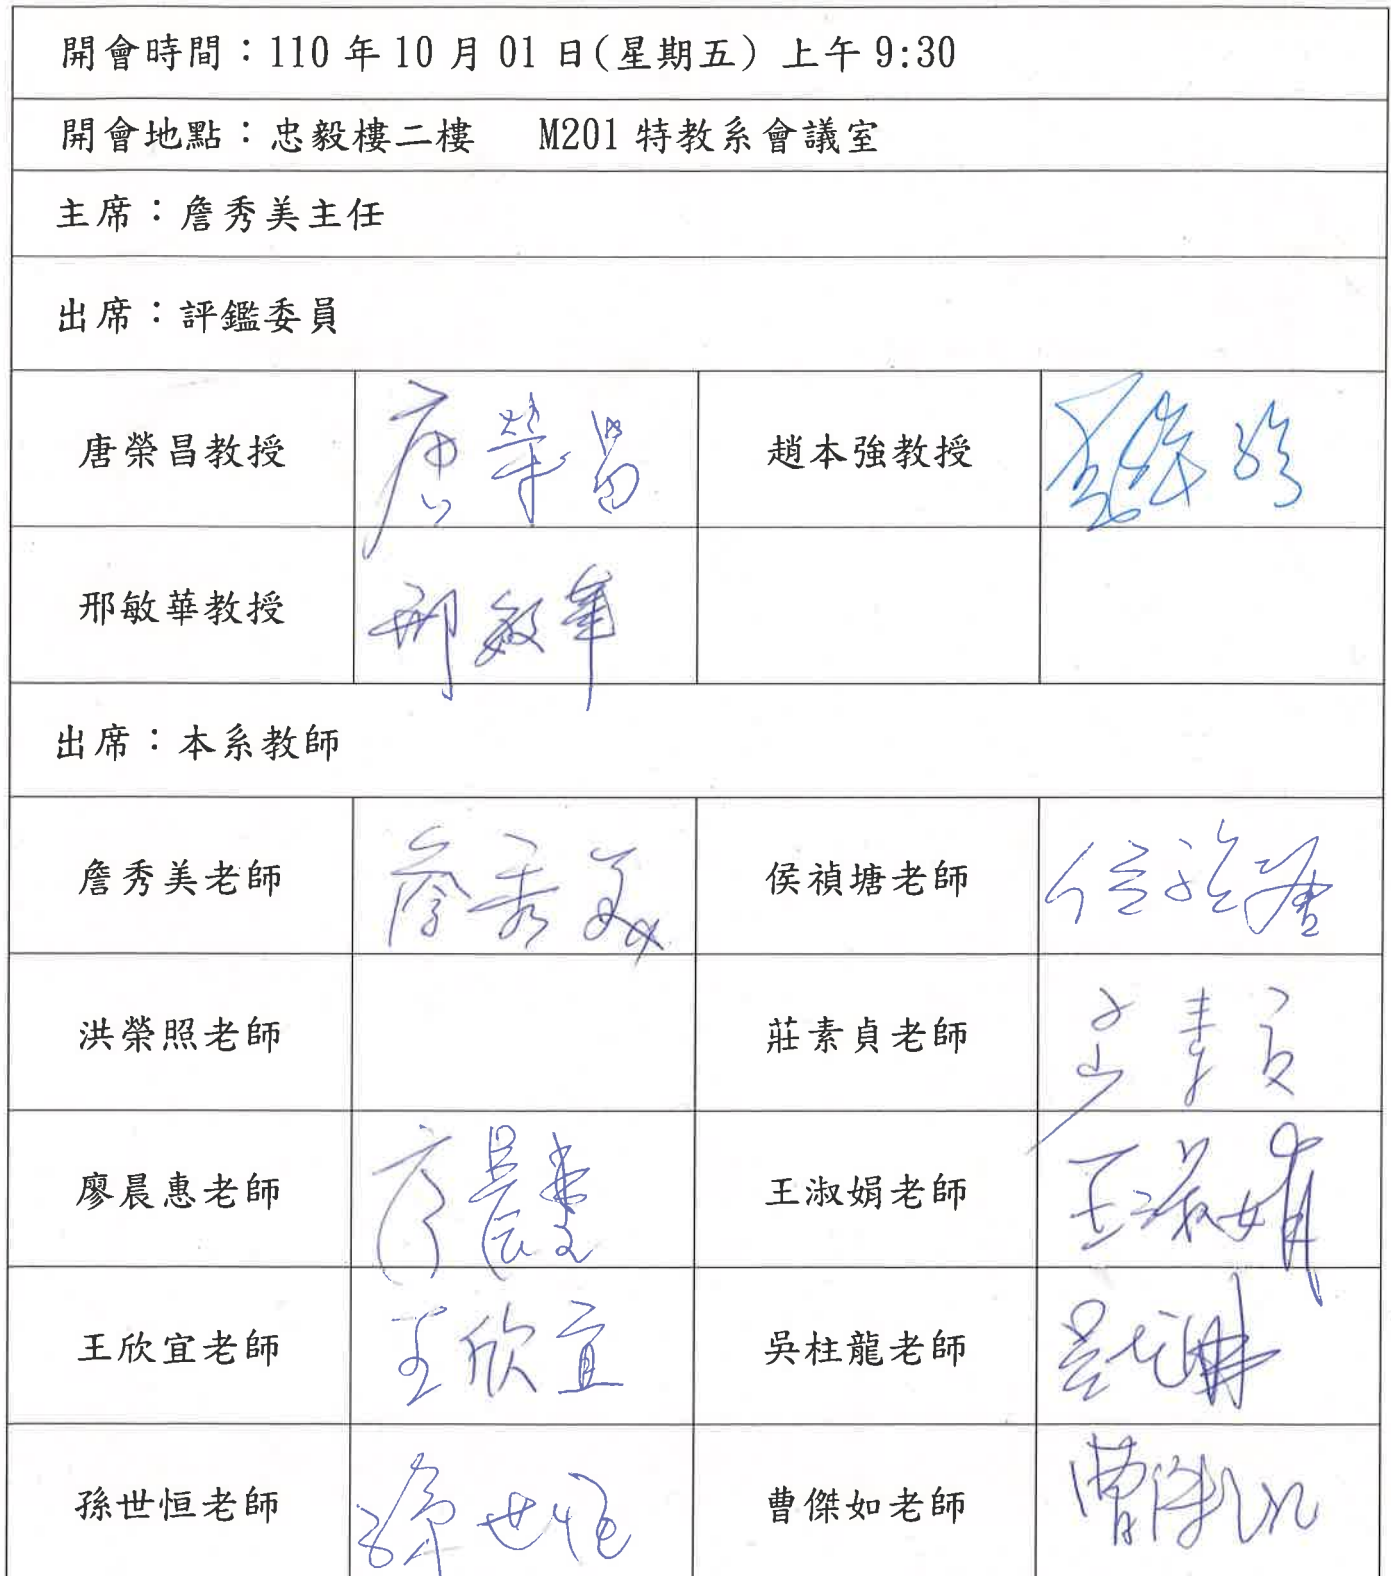 開會時間：110 年 10 月 01 日(星期五) 上午 9:30
開會地點：忠毅樓二樓 M201 特教系會議室
主席：詹秀美主任
出席：評鑑委員
唐榮昌教授 唐榮昌 趙本強教授
邢敏華教授 邢敏華
出席：本系教師
詹秀美老師 詹秀美 侯禎塘老師 侯禎塘
洪榮照老師 莊素貞老師 莊素貞
廖晨惠老師 廖晨惠 王淑娟老師 王淑娟
王欣宜老師 王欣宜 吳柱龍老師
孫世恒老師 孫世恒 曹傑如老師 曹傑如